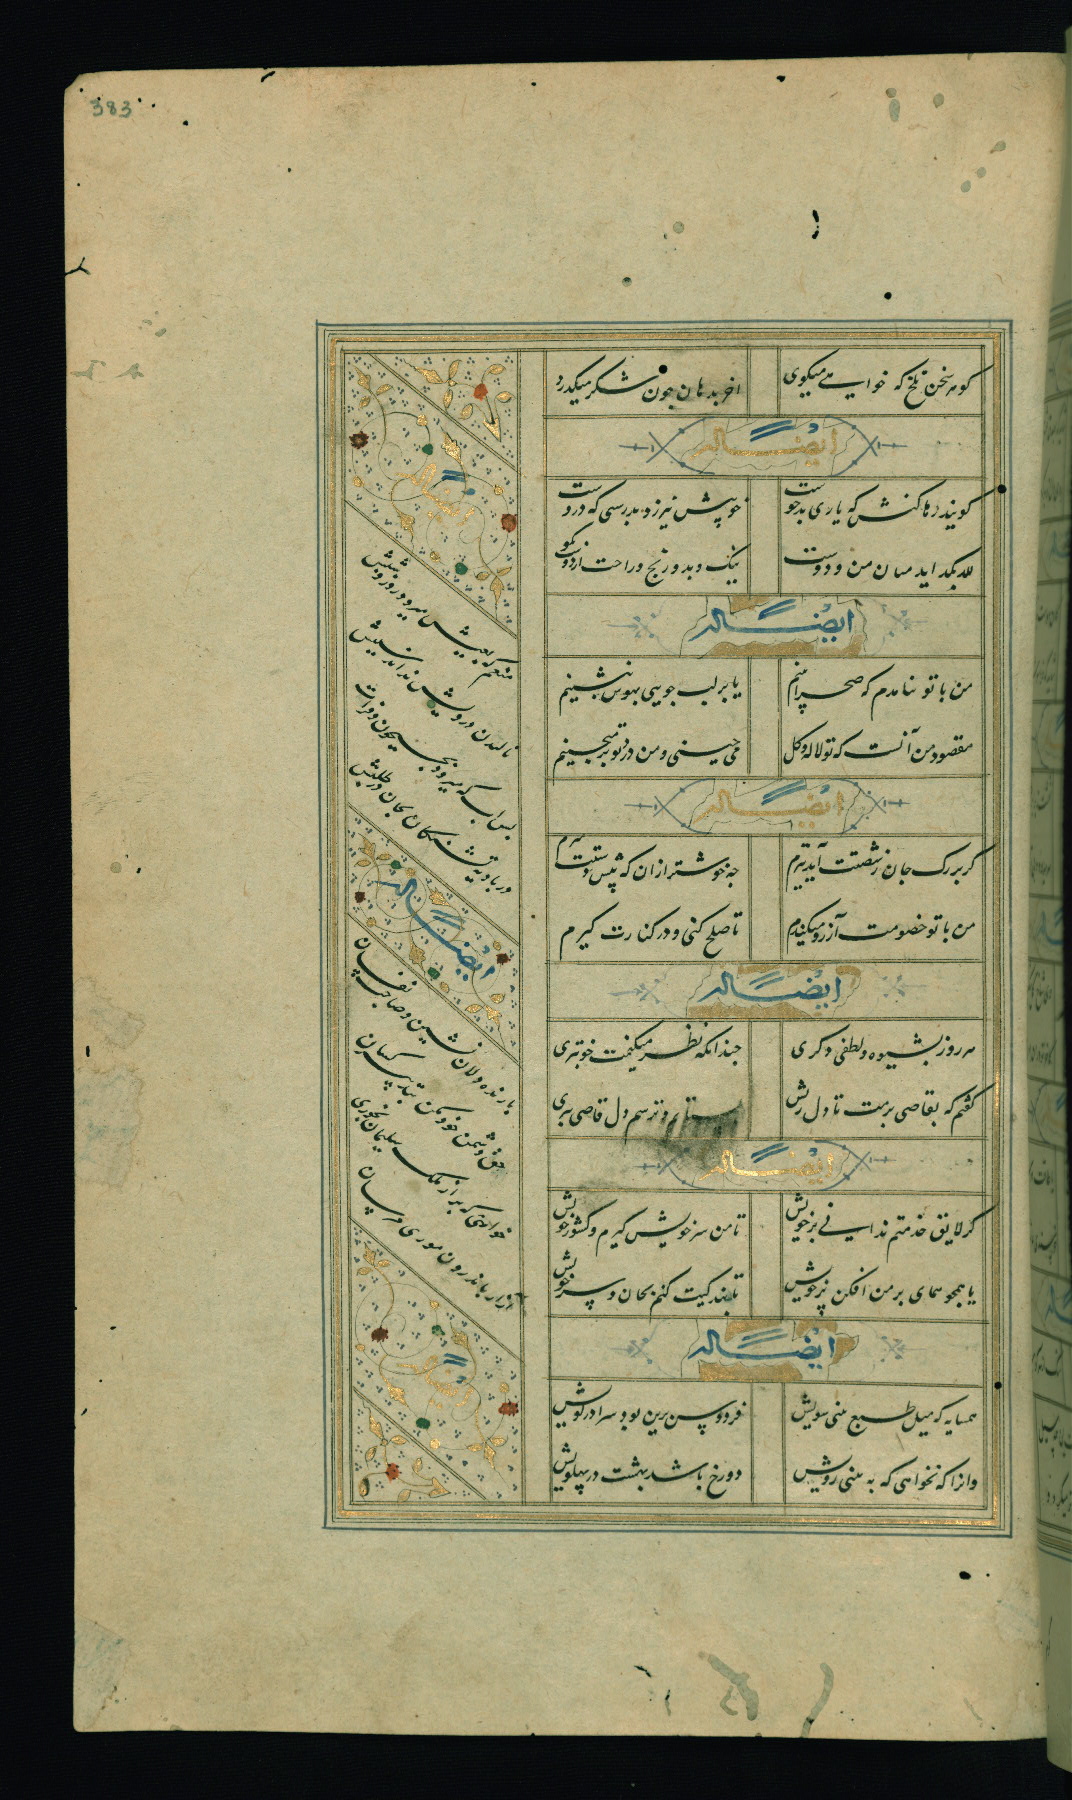 383
کو هر سخن تلخ که خواهی میگوی
اخر بدهان چون شکر میگذرد
ایضاً له
کویند رها کنش که یاری بدخوست
خوبیش نیرزد بدرستی که دروست
لله بگذارید میان من و دوست
نیک و بد و رنج و راحت از دوست نکو
ایضاً له
من با تو نیامدم که صحرا بینم
یا بر لب جویی بهوس بنشینم
مقصود من آنست که تو لاله و کل
می چینی و من در تو تو بر میچینم
ایضاً له
کر بر رک جان ز شصتت آید تیرم
چه خوشتر ازان که پیش دستت میرم
من با تو خصومت آرزو میکندم
تا صلح کنی و در کنارت کیرم
ایضاً له
هر روز بشیوه و لطفی دکری
چندانکه نظر میکنمت خوبتری
کفتم که بقاضی برمت تا دل خویش
بستانم و ترسم دل قاضی ببری
ایضاً له
کر لایق خدمتم ندانی بر خویش
تا من سر خویش کیرم و کشور خویش
یا همچو همای بر من افکن پر خویش
تا بندکیت کنم بجان و سر خویش
ایضاً له
همسایه که میل طبع بینی سویش
فردوس برین بود سرا در کویش
وانرا که نخواهی که به بینی رویش
دوزخ باشد بهشت در پهلویش
ایضاً له
منعم که بعیش میرود روز و شبش
نالیدن درویش نداند سببش
بس آب که میرود بجیحون و فرات
در بادیه تشنکان بجان در طلبش
ایضاً له
با زنده دلان نشین و صادق نفسان
حق دشمن خود مکن بتدبیر کسان
خواهی که بر از ملک سلیمان بخوری
آزار باندرون موری مرسان
ایضاً له